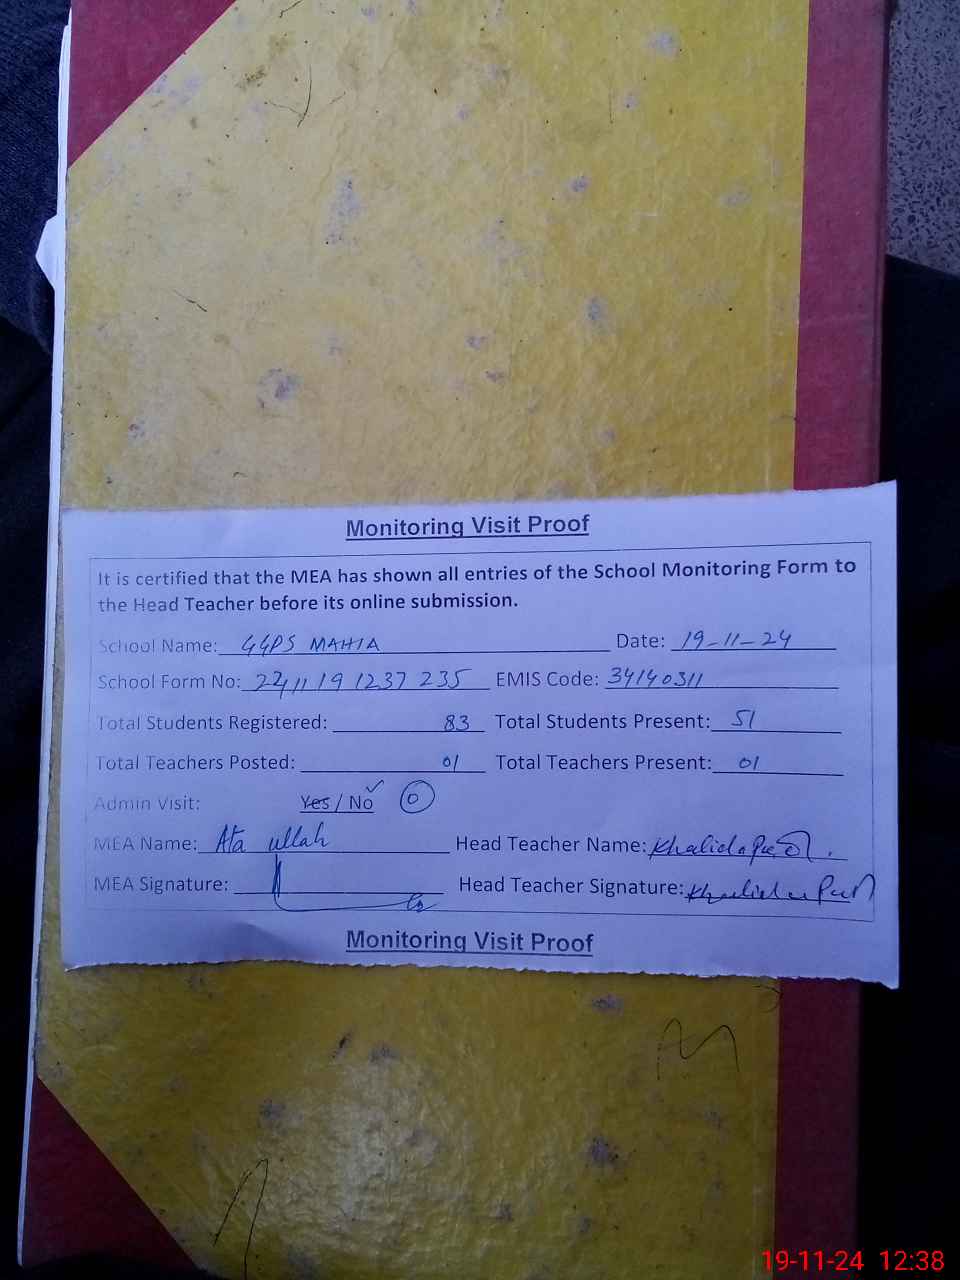 Monitoring Visit Proof
It is certified that the MEA has shown all entries of the School Monitoring Form to
the Head Teacher before its online submission.
School Name: GGPS MAHIA Date: 19-11-24
School Form No: 2411191237235 EMIS Code: 34140311
Total Students Registered: 83 Total Students Present: 51
Total Teachers Posted: 01 Total Teachers Present: 01
Admin Visit: Yes / No 0
MEA Name: Ata ullah Head Teacher Name: Khalida
MEA Signature: Head Teacher Signature: Khalida
Monitoring Visit Proof
19-11-24 12:38